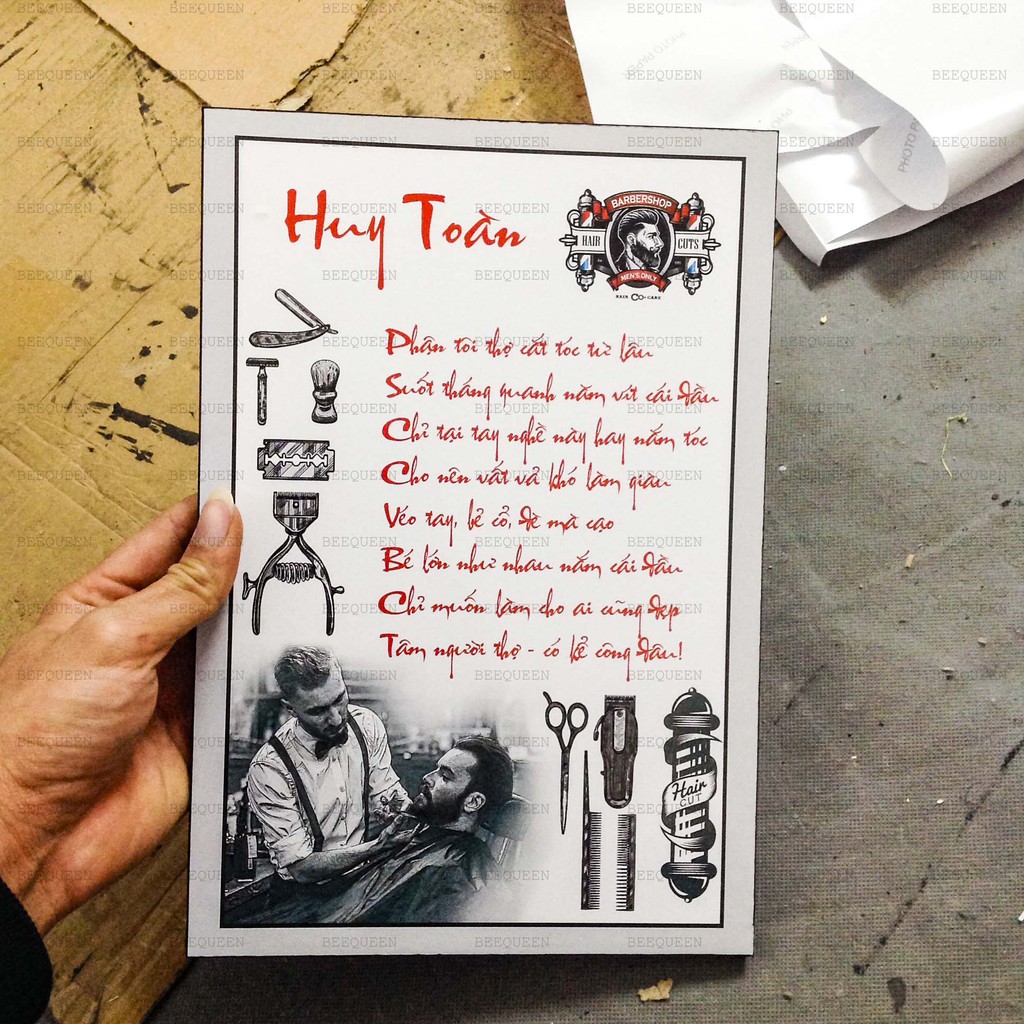 Huy Toàn
BARBERSHOP
HAIR CUTS
MEN'S ONLY
HAIR CO CARE
Phận tôi thợ cắt tóc từ lâu
Suốt tháng quanh năm vít cái đầu
Chỉ tại tay nghề này hay nắm tóc
Cho nên vất vả khó làm giàu
Véo tay, bẻ cổ, đè mà cạo
Bé lớn như nhau nắm cái đầu
Chỉ muốn làm cho ai cũng đẹp
Tâm người thợ - có kể công đâu!
Hair
CUT
BEEQUEEN